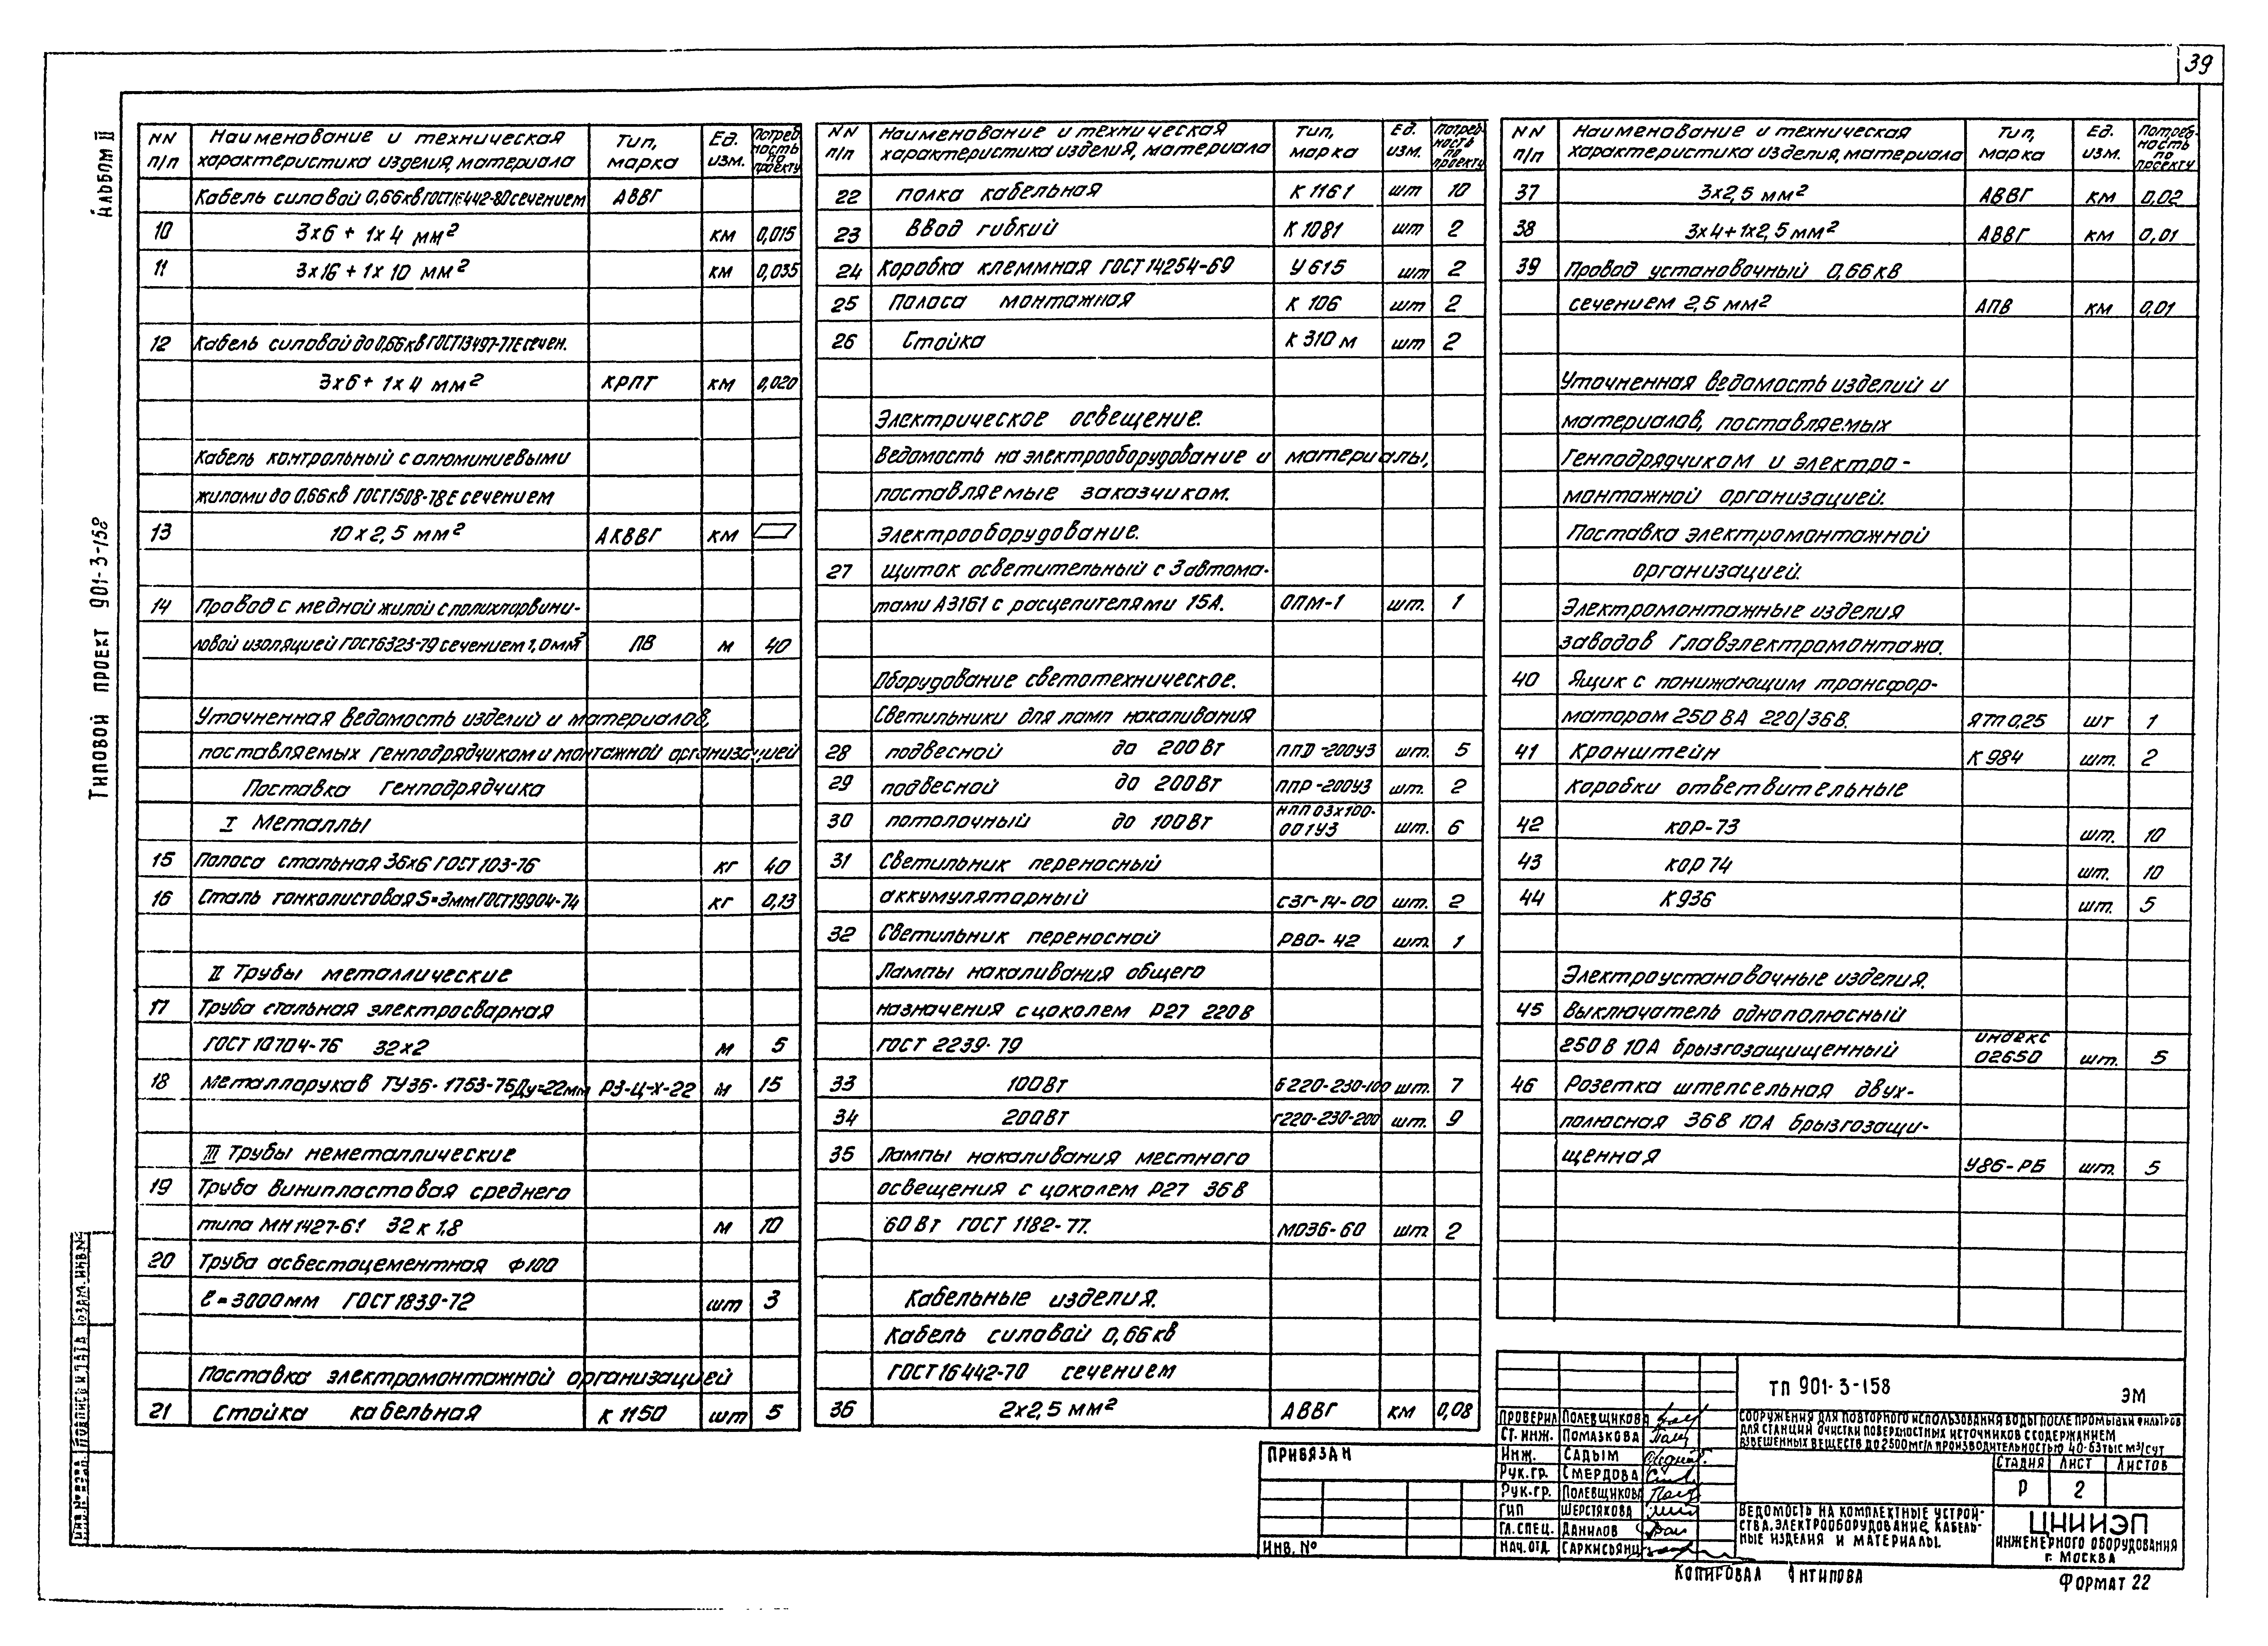 39
Альбом II
Типовой проект 901-3-158
NN п/п | Наименование и техническая характеристика изделия, материала | Тип, марка | Ед. изм. | Потреб-ность по проекту
Кабель силовой 0,66кв ГОСТ16442-80 сечением | АВВГ
10 | 3х6 + 1х4 мм² | км | 0,015
11 | 3х16 + 1х10 мм² | км | 0,035
12 | Кабель силовой до 0,66кв ГОСТ13497-77Е сечен.
3х6 + 1х4 мм² | КРПТ | км | 0,020
Кабель контрольный с алюминиевыми
жилами до 0.66кв ГОСТ1508-78Е сечением
13 | 10х2,5 мм² | АКВВГ | км
14 | Провод с медной жилой с полихлорвини-
ловой изоляцией ГОСТ6323-79 сечением 1,0мм² | ПВ | м | 40
Уточненная ведомость изделий и материалов,
поставляемых генподрядчиком и монтажной организацией
Поставка генподрядчика
I Металлы
15 | Полоса стальная 36х6 ГОСТ103-76 | кг | 40
16 | Сталь тонколистовая S=3мм ГОСТ19904-74 | кг | 0,13
II Трубы металлические
17 | Труба стальная электросварная
ГОСТ 10704-76 32х2 | м | 5
18 | Металлорукав ТУ36-1753-75 Ду=22мм | РЗ-Ц-Х-22 | м | 15
III Трубы неметаллические
19 | Труба винипластовая среднего
типа МН1427-61 32к1,8 | м | 10
20 | Труба асбестоцементная Ф100
ℓ=3000мм ГОСТ1839-72 | шт | 3
Поставка электромонтажной организацией
21 | Стойка кабельная | К 1150 | шт | 5
NN п/п | Наименование и техническая характеристика изделия, материала | Тип, марка | Ед. изм. | Потреб-ность по проекту
22 | полка кабельная | К 1161 | шт | 10
23 | Ввод гибкий | К 1081 | шт | 2
24 | Коробка клеммная ГОСТ14254-69 | У615 | шт | 2
25 | Полоса монтажная | К 106 | шт | 2
26 | Стойка | К 310м | шт | 2
Электрическое освещение.
Ведомость на электрооборудование и материалы,
поставляемые заказчиком.
Электрооборудование.
27 | Щиток осветительный с 3 автома-
тами А3161 с расцепителями 15А. | ОПМ-1 | шт. | 1
Оборудование светотехническое.
Светильники для ламп накаливания
28 | подвесной до 200Вт | ППД-200У3 | шт. | 5
29 | подвесной до 200Вт | ППР-200У3 | шт. | 2
30 | потолочный до 100Вт | НПП03х100-001У3 | шт. | 6
31 | Светильник переносный
аккумуляторный | СЗГ-14-00 | шт. | 2
32 | Светильник переносной | РВО-42 | шт. | 1
Лампы накаливания общего
назначения с цоколем Р27 220В
ГОСТ 2239-79
33 | 100Вт | Б220-230-100 | шт. | 7
34 | 200Вт | Г220-230-200 | шт. | 9
35 | Лампы накаливания местного
освещения с цоколем Р27 36В
60Вт ГОСТ 1182-77. | МО36-60 | шт. | 2
Кабельные изделия.
Кабель силовой 0,66кв
ГОСТ16442-70 сечением
36 | 2х2,5 мм² | АВВГ | км | 0,08
NN п/п | Наименование и техническая характеристика изделия, материала | Тип, марка | Ед. изм. | Потреб-ность по проекту
37 | 3х2,5 мм² | АВВГ | км | 0,02
38 | 3х4+1х2,5мм² | АВВГ | км | 0,01
39 | Провод установочный 0,66кв
сечением 2,5 мм² | АПВ | км | 0,01
Уточненная ведомость изделий и
материалов, поставляемых
Генподрядчиком и электро-
монтажной организацией.
Поставка электромонтажной
организацией.
Электромонтажные изделия
заводов Главэлектромонтажа.
40 | Ящик с понижающим трансфор-
матором 250 ВА 220/36В. | ЯТП0,25 | шт | 1
41 | Кронштейн | К 984 | шт. | 2
Коробки ответвительные
42 | КОР-73 | шт. | 10
43 | КОР 74 | шт. | 10
44 | К936 | шт. | 5
Электроустановочные изделия.
45 | Выключатель однополюсный
250В 10А брызгозащищенный | индекс 02650 | шт. | 5
46 | Розетка штепсельная двух-
полюсная 36В 10А брызгозащи-
щенная | У86-РБ | шт. | 5
ТП 901-3-158 ЭМ
Сооружения для повторного использования воды после промывки фильтров
для станций очистки поверхностных источников с содержанием
взвешенных веществ до 2500мг/л производительностью 40-63тыс м³/сут
Проверил Полевщикова
Ст. инж. Помазкова
Инж. Садым
Рук.гр. Смердова
Рук.гр. Полевщикова
ГИП Шерстякова
Гл.спец. Данилов
Нач.отд. Саркисьянц
Стадия | Лист | Листов
Р | 2
Ведомость на комплектные устрой-
ства, электрооборудование, кабель-
ные изделия и материалы.
ЦНИИЭП
инженерного оборудования
г. Москва
Привязан
Инв. №
Копировал Антипова
Формат 22
Взам. инв.№
Подпись и дата
Инв.№ подл.